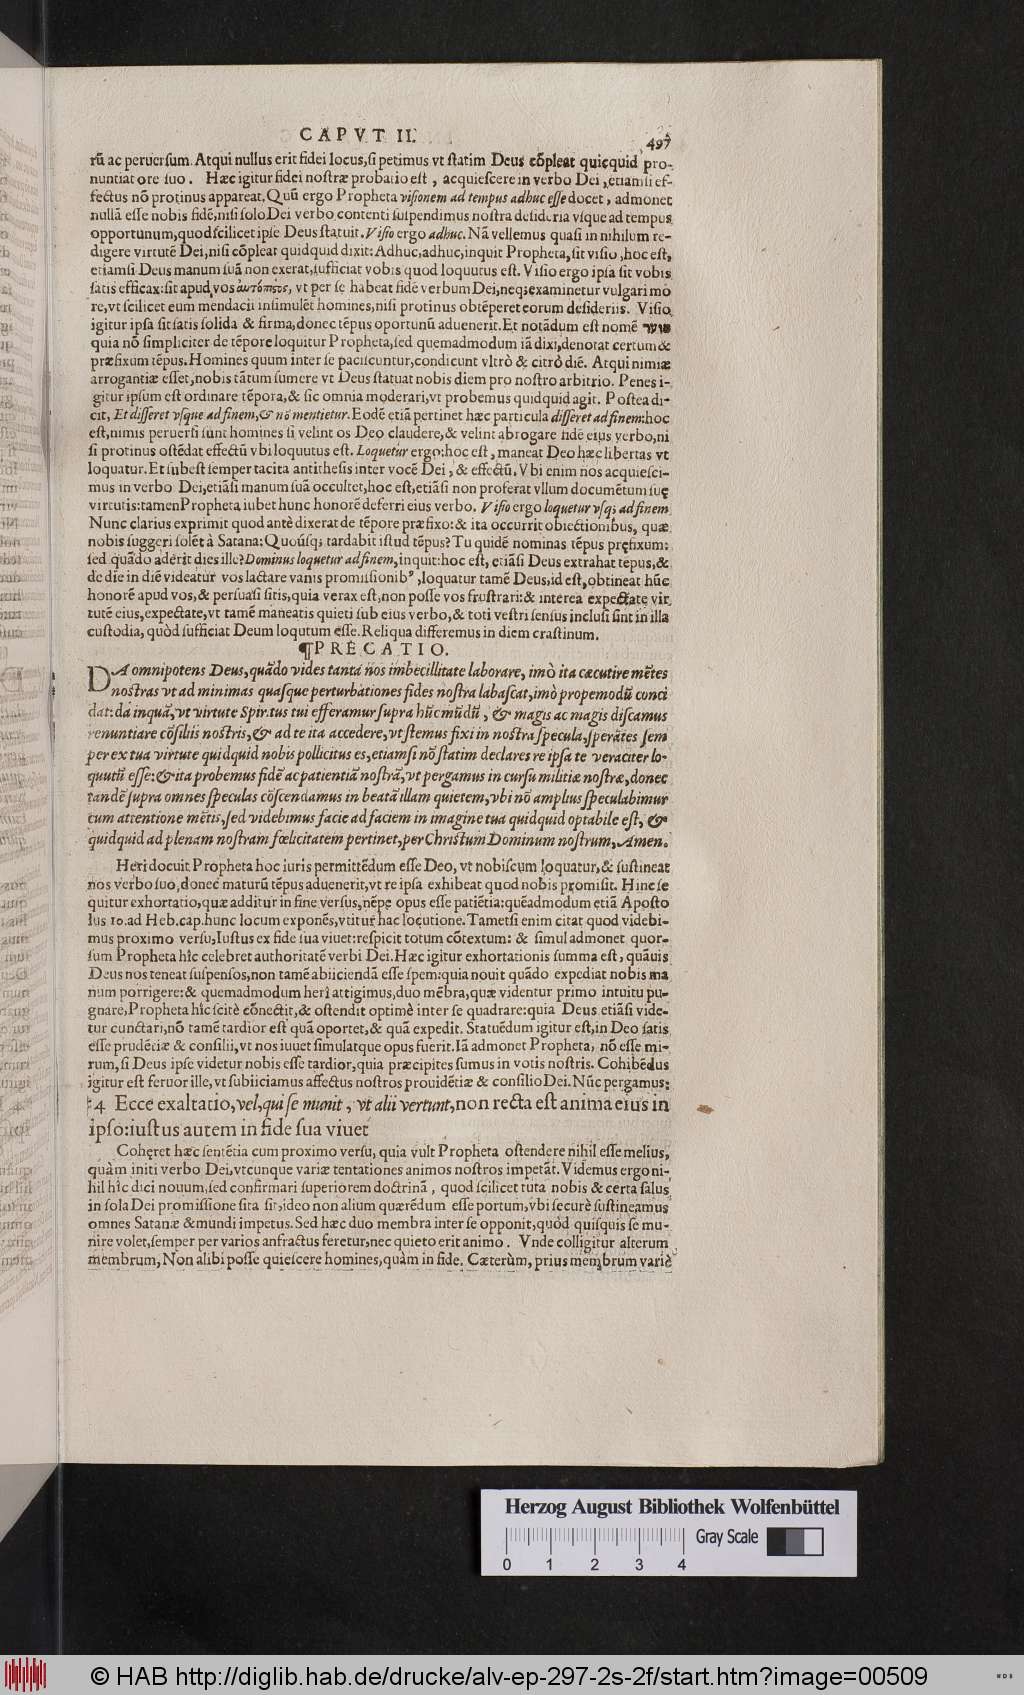 CAPVT II. 497
rũ ac peruersum. Atqui nullus erit fidei locus, si petimus vt statim Deus cõpleat quicquid pro-
nuntiat ore suo. Hæc igitur fidei nostræ probatio est, acquiescere in verbo Dei, etiamsi ef-
fectus nõ protinus appareat. Quũ ergo Propheta visionem ad tempus adhuc esse docet, admonet
nullã esse nobis fidẽ, nisi solo Dei verbo contenti suspendimus nostra desideria vsque ad tempus
opportunum, quod scilicet ipse Deus statuit. Visio ergo adhuc. Nã vellemus quasi in nihilum re-
digere virtutẽ Dei, nisi cõpleat quidquid dixit: Adhuc, adhuc, inquit Propheta, sit visio, hoc est,
etiamsi Deus manum suã non exerat, sufficiat vobis quod loquutus est. Visio ergo ipsa sit vobis
satis efficax: sit apud vos αυτόπιστος, vt per se habeat fidẽ verbum Dei, neq; examinetur vulgari mo
re, vt scilicet eum mendacii insimulẽt homines, nisi protinus obtẽperet eorum desideriis. Visio
igitur ipsa sit satis solida & firma, donec tẽpus oportunũ aduenerit. Et notãdum est nomẽ
quia nõ simpliciter de tẽpore loquitur Propheta, sed quemadmodum iã dixi, denotat certum &
præfixum tẽpus. Homines quum inter se paciscuntur, condicunt vltrò & citrò diẽ. Atqui nimiæ
arrogantiæ esset, nobis tãtum sumere vt Deus statuat nobis diem pro nostro arbitrio. Penes i-
gitur ipsum est ordinare tẽpora, & sic omnia moderari, vt probemus quidquid agit. Postea di-
cit, Et differet vsque ad finem, & nõ mentietur. Eodẽ etiã pertinet hæc particula differet ad finem: hoc
est, nimis peruersi sunt homines si velint os Deo claudere, & velint abrogare fidẽ eius verbo, ni
si protinus ostẽdat effectũ vbi loquutus est. Loquetur ergo: hoc est, maneat Deo hæc libertas vt
loquatur. Et subest semper tacita antithesis inter vocẽ Dei, & effectũ. Vbi enim nos acquiesci-
mus in verbo Dei, etiãsi manum suã occultet, hoc est, etiãsi non proferat vllum documẽtum suę
virtutis: tamen Propheta iubet hunc honorẽ deferri eius verbo. Visio ergo loquetur vsq; ad finem
Nunc clarius exprimit quod antè dixerat de tẽpore præfixo: & ita occurrit obiectionibus, quæ
nobis suggeri solẽt à Satana: Quoúsq; tardabit istud tẽpus? Tu quidẽ nominas tẽpus pręfixum:
sed quãdo aderit dies ille? Dominus loquetur ad finem, inquit: hoc est, etiãsi Deus extrahat tẽpus, &
de die in diẽ videatur vos lactare vanis promissionibꝰ, loquatur tamẽ Deus, id est, obtineat hũc
honorẽ apud vos, & persuasi sitis, quia verax est, non posse vos frustrari: & interea expectate vir
tutẽ eius, expectate, vt tamẽ maneatis quieti sub eius verbo, & toti vestri sensus inclusi sint in illa
custodia, quòd sufficiat Deum loqutum esse. Reliqua differemus in diem crastinum.
¶PRECATIO.
DA omnipotens Deus, quãdo vides tanta nos imbecillitate laborare, imò ita cæcutire mẽtes
nostras vt ad minimas quasque perturbationes fides nostra labascat, imò propemodũ conci
dat: da inquã, vt virtute Spiritus tui efferamur supra hũc mũdũ, & magis ac magis discamus
renuntiare cõsiliis nostris, & ad te ita accedere, vt stemus fixi in nostra specula, sperãtes sem
per ex tua virtute quidquid nobis pollicitus es, etiamsi nõ statim declares re ipsa te veraciter lo-
quutũ esse: & ita probemus fidẽ ac patientiã nostrã, vt pergamus in cursu militiæ nostræ, donec
tandẽ supra omnes speculas cõscendamus in beatã illam quietem, vbi nõ amplius speculabimur
cum attentione mẽtis, sed videbimus facie ad faciem in imagine tua quidquid optabile est, &
quidquid ad plenam nostram fœlicitatem pertinet, per Christum Dominum nostrum, Amen.
Heri docuit Propheta hoc iuris permittẽdum esse Deo, vt nobiscum loquatur, & sustineat
nos verbo suo, donec maturũ tẽpus aduenerit, vt re ipsa exhibeat quod nobis promisit. Hinc se
quitur exhortatio, quæ additur in fine versus, nẽpe opus esse patiẽtia: quẽadmodum etiã Aposto
lus 10. ad Heb. cap. hunc locum exponẽs, vtitur hac locutione. Tametsi enim citat quod videbi-
mus proximo versu, Iustus ex fide sua viuet: respicit totum cõtextum: & simul admonet quor-
sum Propheta hîc celebret authoritatẽ verbi Dei. Hæc igitur exhortationis summa est, quãuis
Deus nos teneat suspensos, non tamẽ abiiciendã esse spem: quia nouit quãdo expediat nobis ma
num porrigere: & quemadmodum heri attigimus, duo mẽbra, quæ videntur primo intuitu pu-
gnare, Propheta hîc scitè cõnectit, & ostendit optimè inter se quadrare: quia Deus etiãsi vide-
tur cunctari, nõ tamẽ tardior est quã oportet, & quã expedit. Statuẽdum igitur est, in Deo satis
esse prudẽtiæ & consilii, vt nos iuuet simulatque opus fuerit. Iã admonet Propheta, nõ esse mi-
rum, si Deus ipse videtur nobis esse tardior, quia præcipites sumus in votis nostris. Cohibẽdus
igitur est feruor ille, vt subiiciamus affectus nostros prouidẽtiæ & consilio Dei. Nũc pergamus:
4 Ecce exaltatio, vel, qui se munit, vt alii vertunt, non recta est anima eius in
ipso: iustus autem in fide sua viuet
Cohęret hæc sentẽtia cum proximo versu, quia vult Propheta ostendere nihil esse melius,
quàm initi verbo Dei, vtcunque variæ tentationes animos nostros impetãt. Videmus ergo ni-
hil hîc dici nouum, sed confirmari superiorem doctrinã, quod scilicet tuta nobis & certa salus
in sola Dei promissione sita sit, ideo non alium quærẽdum esse portum, vbi securè sustineamus
omnes Satanæ & mundi impetus. Sed hæc duo membra inter se opponit, quòd quisquis se mu-
nire volet, semper per varios anfractus feretur, nec quieto erit animo. Vnde colligitur alterum
membrum, Non alibi posse quiescere homines, quàm in fide. Cæterùm, prius membrum variè
Herzog August Bibliothek Wolfenbüttel
Gray Scale
0 1 2 3 4
© HAB http://diglib.hab.de/drucke/alv-ep-297-2s-2f/start.htm?image=00509